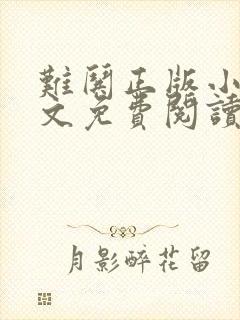 難鬪正版小
文免費閱讀
月影醉花留